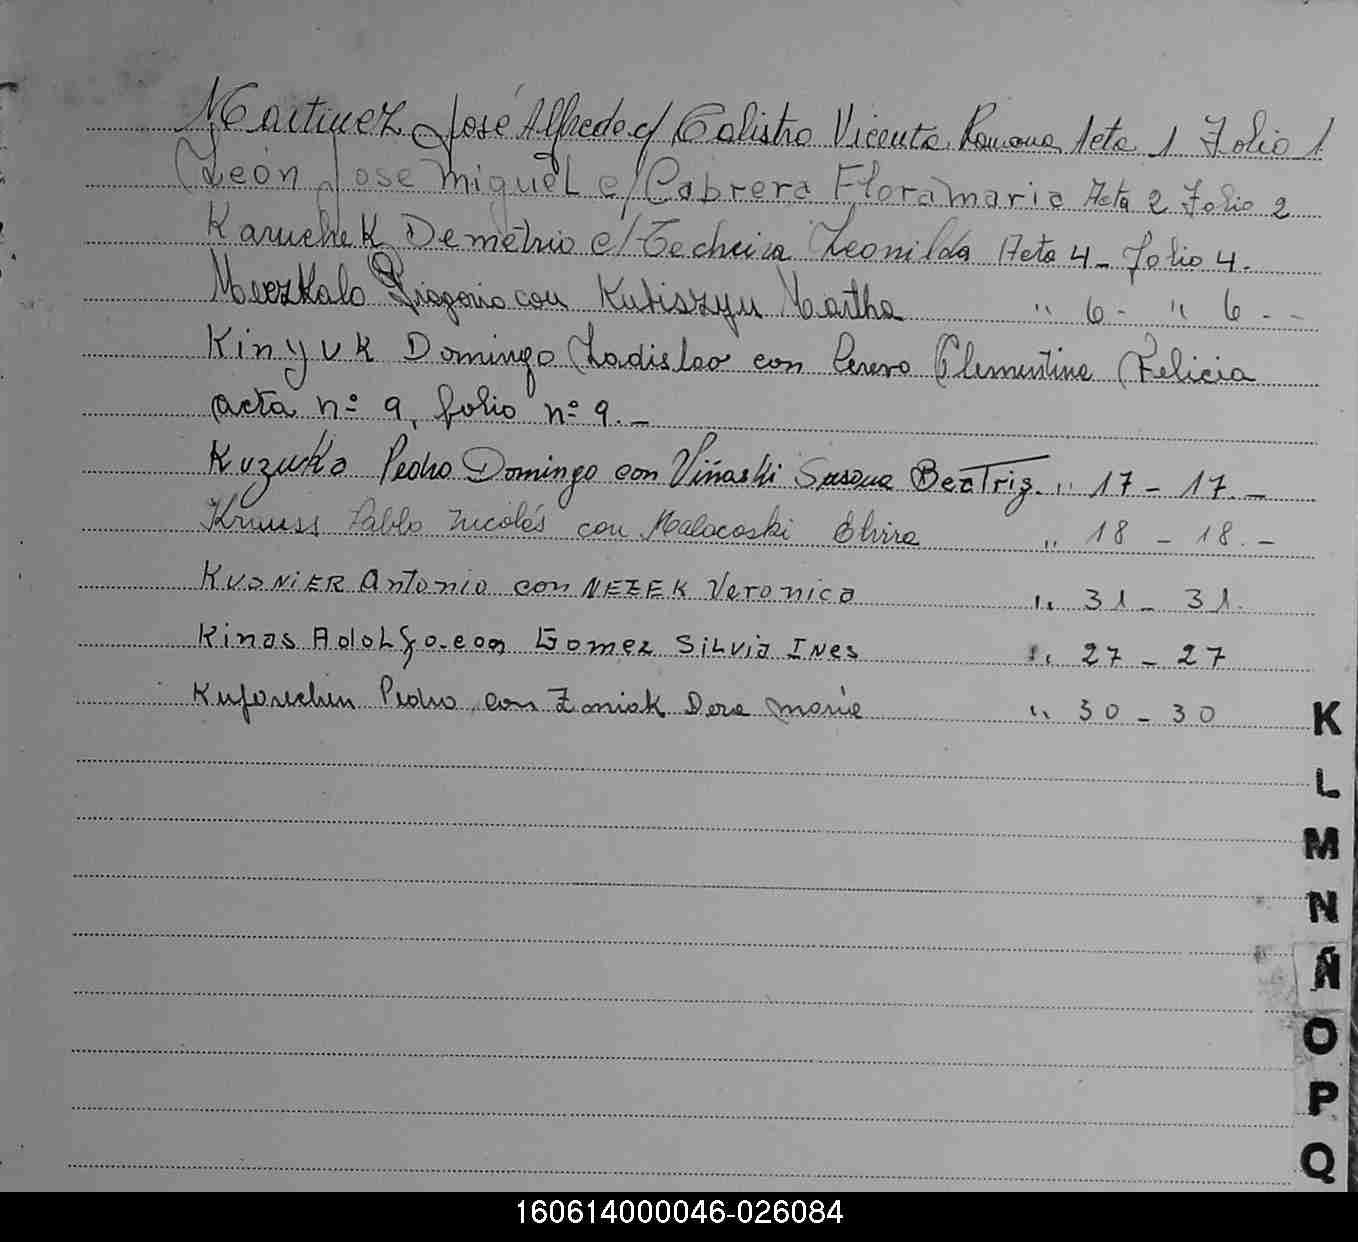 Martinez José Alfredo c/ Calistro Vicenta Ramona Acta 1 Folio 1
León Jose Miguel c/ Cabrera Flora Maria Acta 2 Folio 2
Karuchek Demetrio c/ Techeira Leonilda Acta 4 - Folio 4.
con Martha " 6 - " 6 - -
Kinyuk Domingo Ladislao con Clementina Felicia
acta nº 9, folio nº 9. -
Kuzuka Pedro Domingo con Viñaski Susana Beatriz. " 17 - 17. -
Krauss Pablo Nicolás con Malacoski Elvira " 18 - 18. -
KUSNiER Antonio con NEZEK Veronica " 31 - 31.
Kinas Adolfo. con Gomez Silvia INes " 27 - 27
Pedro con Zaniak Dora Maria " 30 - 30
K
L
M
N
Ñ
O
P
Q
160614000046-026084